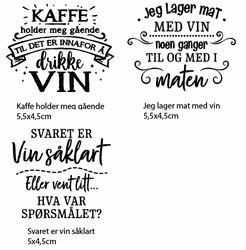 KAFFE
holder meg gående
TIL DET ER INNAFOR Å
drikke
VIN
Kaffe holder meg gående
5,5x4,5cm
Jeg Lager mat
MED VIN
noen ganger
TIL OG MED I
maten
Jeg lager mat med vin
5,5x4,5cm
SVARET ER
Vin såklart
Eller vent litt...
HVA VAR
SPØRSMÅLET?
Svaret er vin såklart
5x4,5cm